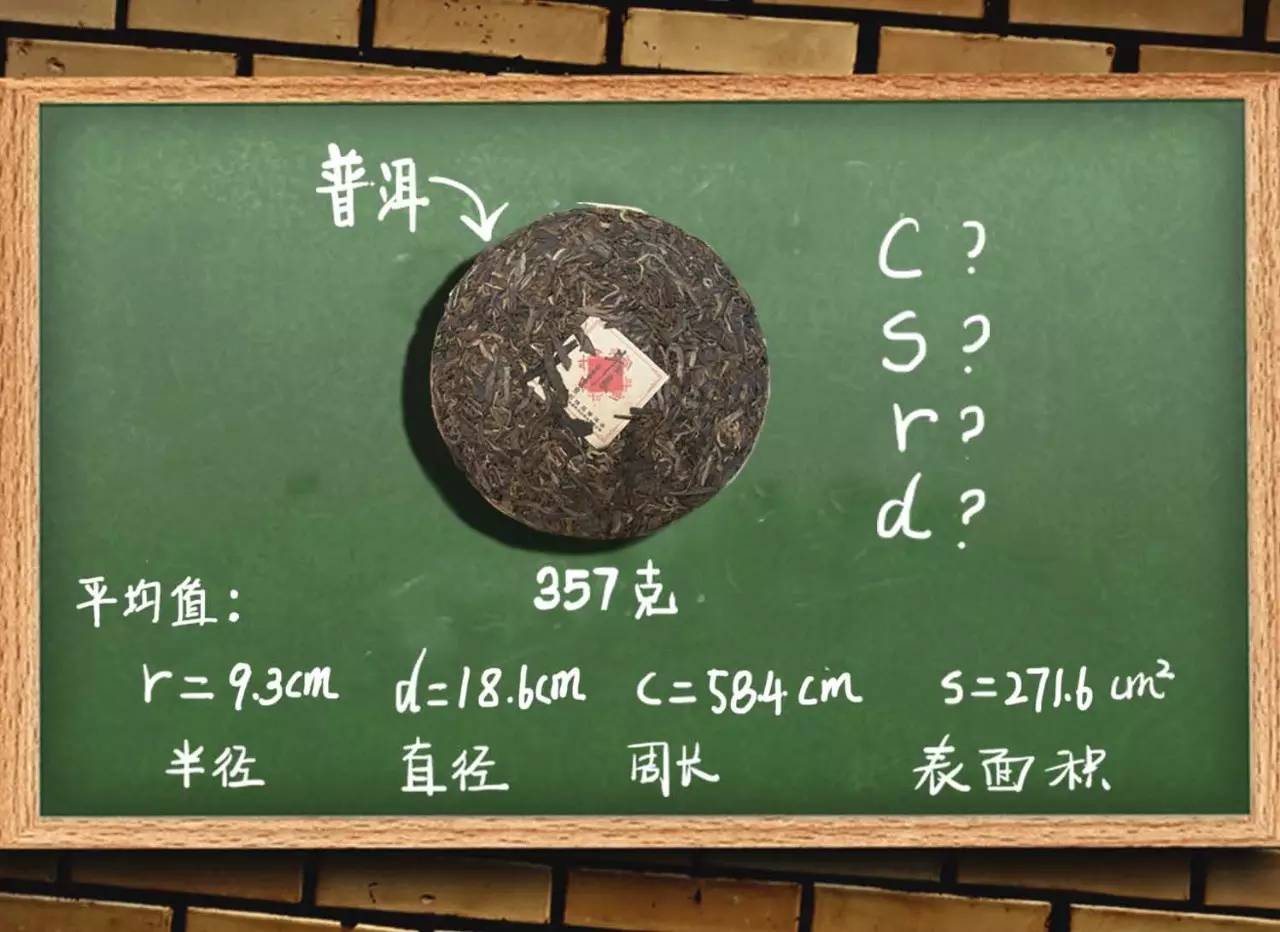 普洱
C ?
S ?
r ?
d ?
357克
平均值:
r=9.3cm d=18.6cm C=58.4cm S=271.6cm²
半径 直径 周长 表面积